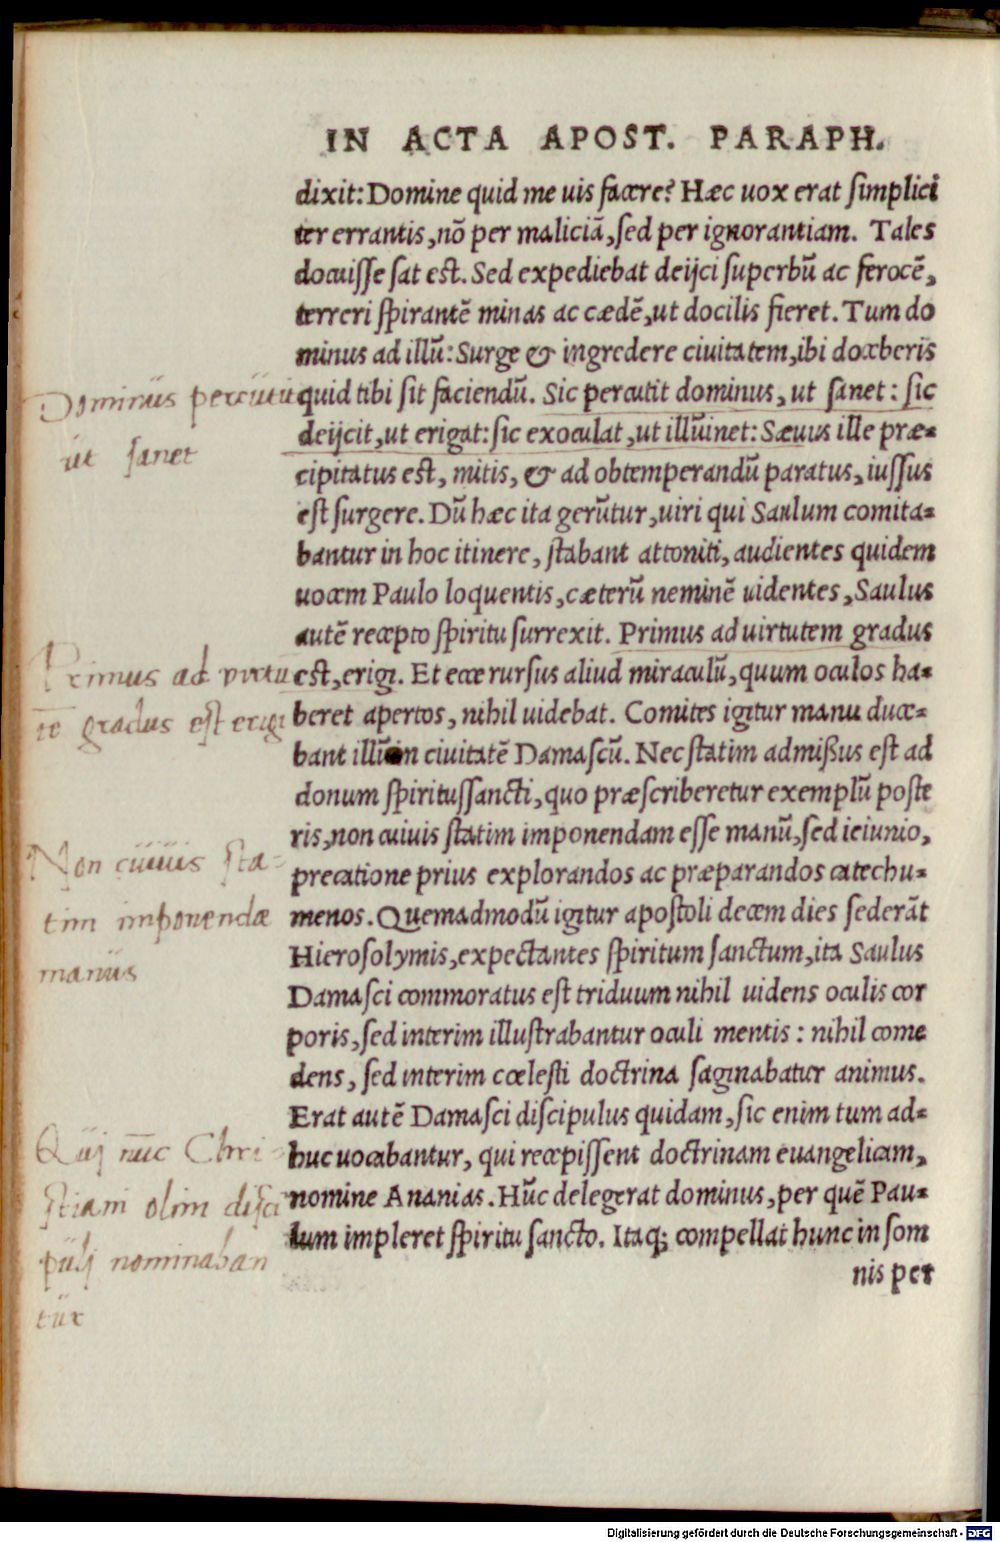 IN ACTA APOST. PARAPH.
dixit: Domine quid me uis facere? Hæc uox erat simplici
ter errantis, nõ per maliciã, sed per ignorantiam. Tales
docuisse sat est. Sed expediebat deijci superbũ ac ferocẽ,
terreri spirantẽ minas ac cædẽ, ut docilis fieret. Tum do
minus ad illũ: Surge & ingredere ciuitatem, ibi doceberis
quid tibi sit faciendũ. Sic percutit dominus, ut sanet: sic
deijcit, ut erigat: sic exoculat, ut illũinet: Sæuus ille præ-
cipitatus est, mitis, & ad obtemperandũ paratus, iussus
est surgere. Dũ hæc ita gerũtur, uiri qui Saulum comita-
bantur in hoc itinere, stabant attoniti, audientes quidem
uocem Paulo loquentis, cæterũ neminẽ uidentes, Saulus
autẽ recepto spiritu surrexit. Primus ad uirtutem gradus
est, erigi. Et ecce rursus aliud miraculũ, quum oculos ha-
beret apertos, nihil uidebat. Comites igitur manu duce-
bant illũ in ciuitatẽ Damascũ. Nec statim admißus est ad
donum spiritussancti, quo præscriberetur exemplũ poste
ris, non cuiuis statim imponendam esse manũ, sed ieiunio,
precatione prius explorandos ac præparandos catechu-
menos. Quemadmodũ igitur apostoli decem dies sederãt
Hierosolymis, expectantes spiritum sanctum, ita Saulus
Damasci commoratus est triduum nihil uidens oculis cor
poris, sed interim illustrabantur oculi mentis: nihil come
dens, sed interim cœlesti doctrina saginabatur animus.
Erat autẽ Damasci discipulus quidam, sic enim tum ad-
huc uocabantur, qui recepissent doctrinam euangelicam,
nomine Ananias. Hũc delegerat dominus, per quẽ Pau-
lum impleret spiritu sancto. Itaq; compellat hunc in som
nis per
Dominus percutit
ut sanet
Primus ad virtu
tẽ gradus est erigi
Non cuiuis sta-
tim imponendæ
manus
Quj nũc Chri-
stiani olim disci
pulj nominaban
tur
Digitalisierung gefördert durch die Deutsche Forschungsgemeinschaft - DFG